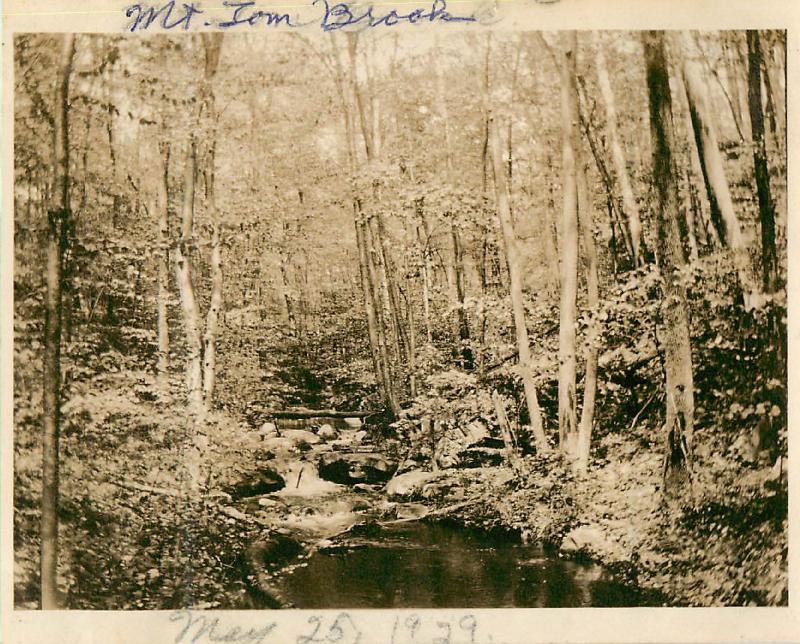 Mt. Tom Brook
May 25, 1929.